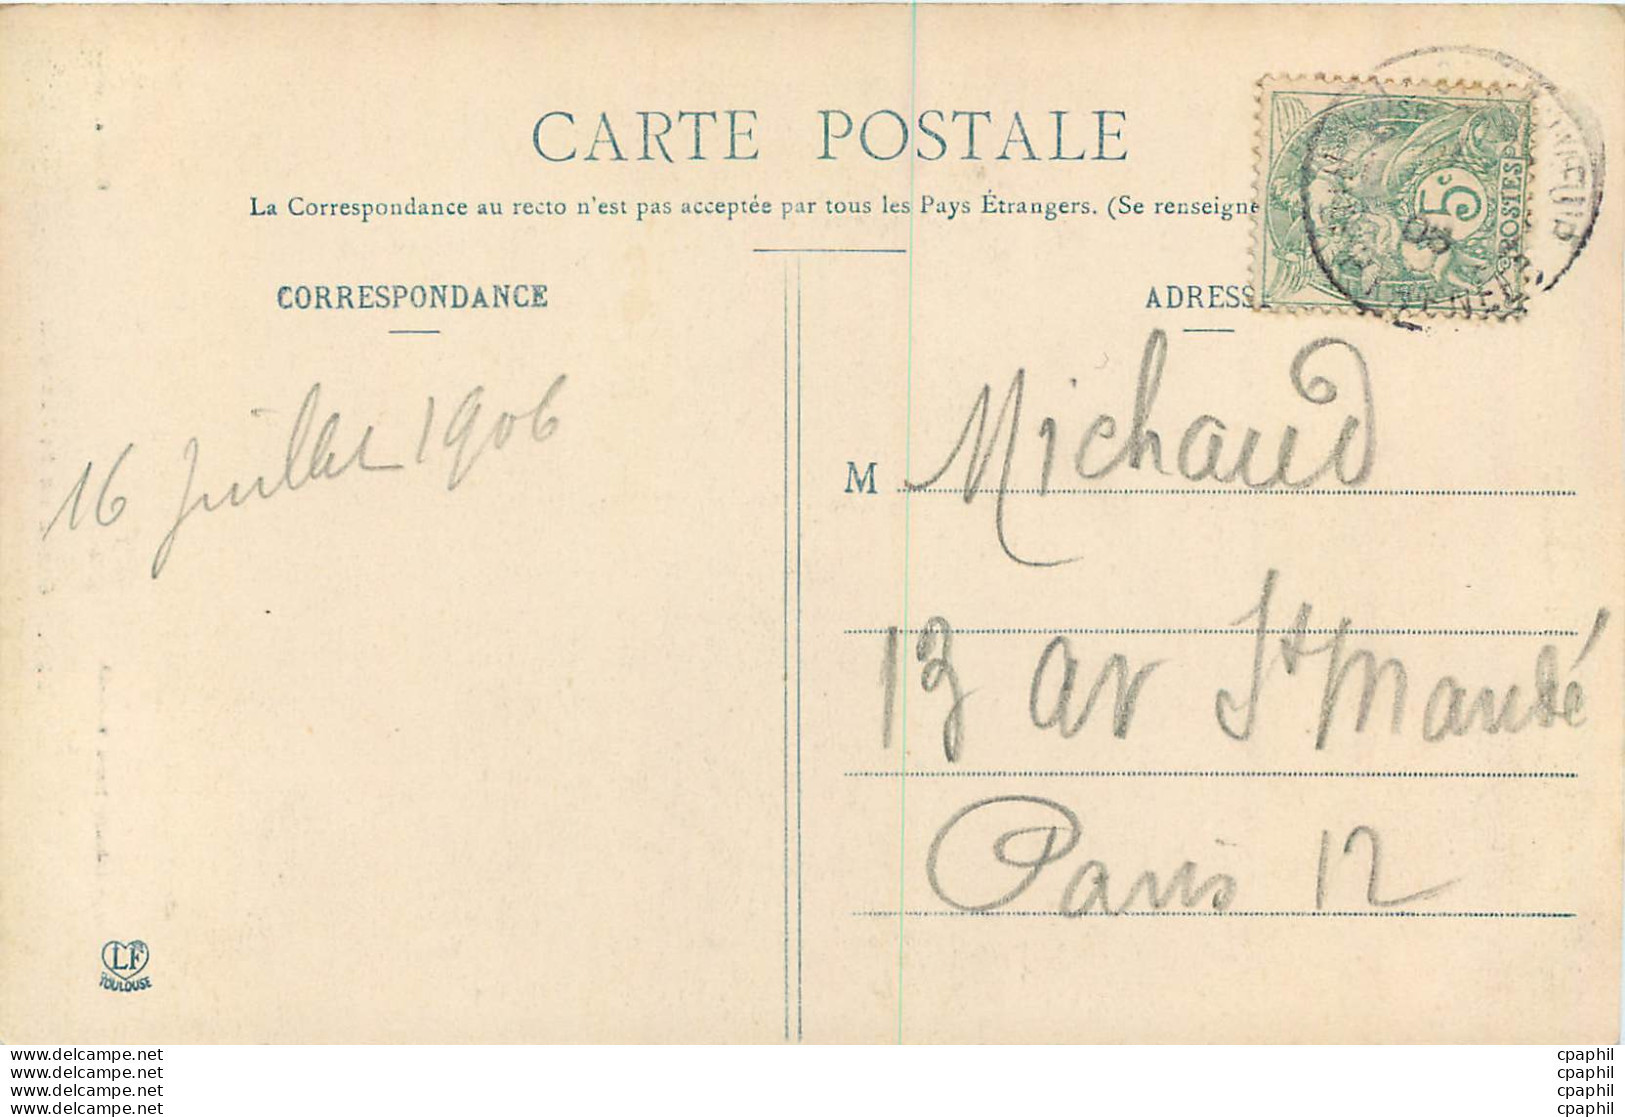 CARTE POSTALE
La Correspondance au recto n'est pas acceptée par tous les Pays Étrangers. (Se renseigne
CORRESPONDANCE
ADRESSE
5c
POSTES
16 Juillet 1906
M Michaud
13 av St Mandé
Paris 12
LF
TOULOUSE
www.delcampe.net
www.delcampe.net
www.delcampe.net
www.delcampe.net
cpaphil
cpaphil
cpaphil
cpaphil